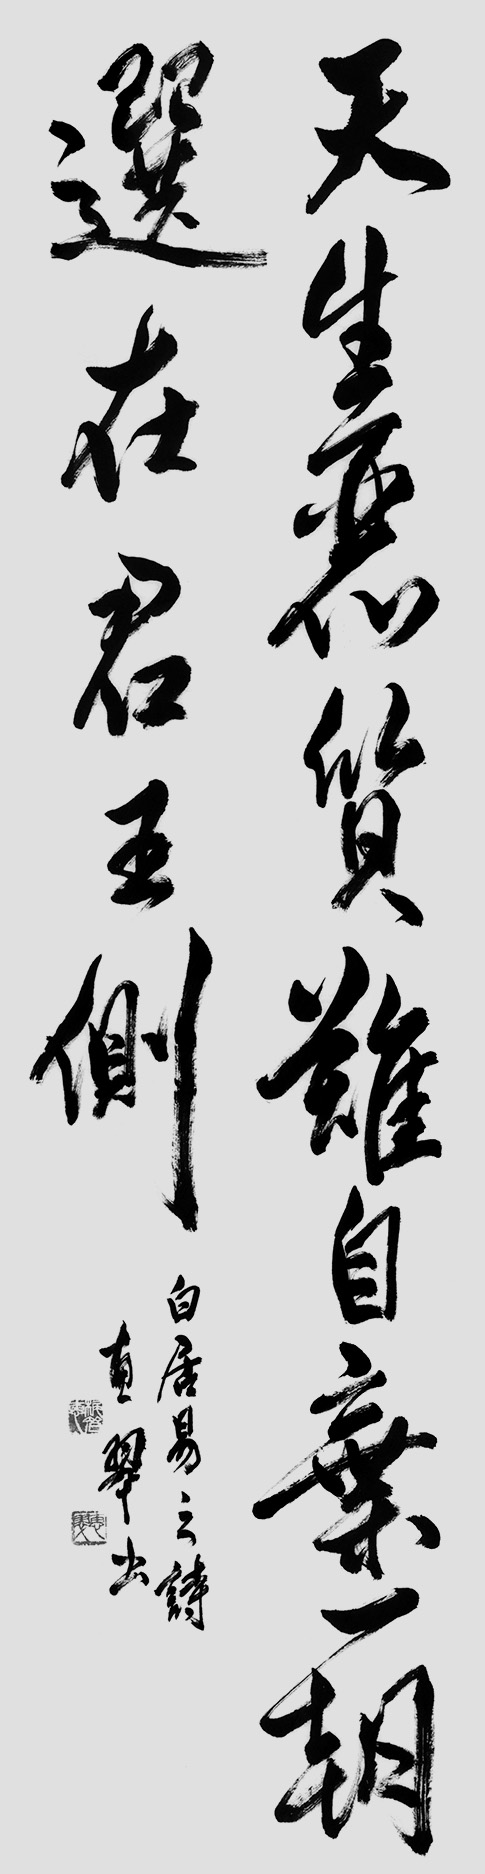 天生麗質難自棄一朝
選在君王側
白居易之詩
翠书